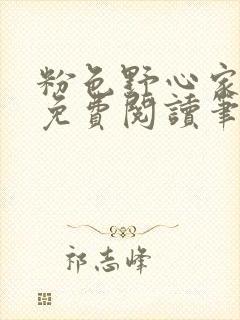 粉色野心家
免費閱讀筆
祁志峰